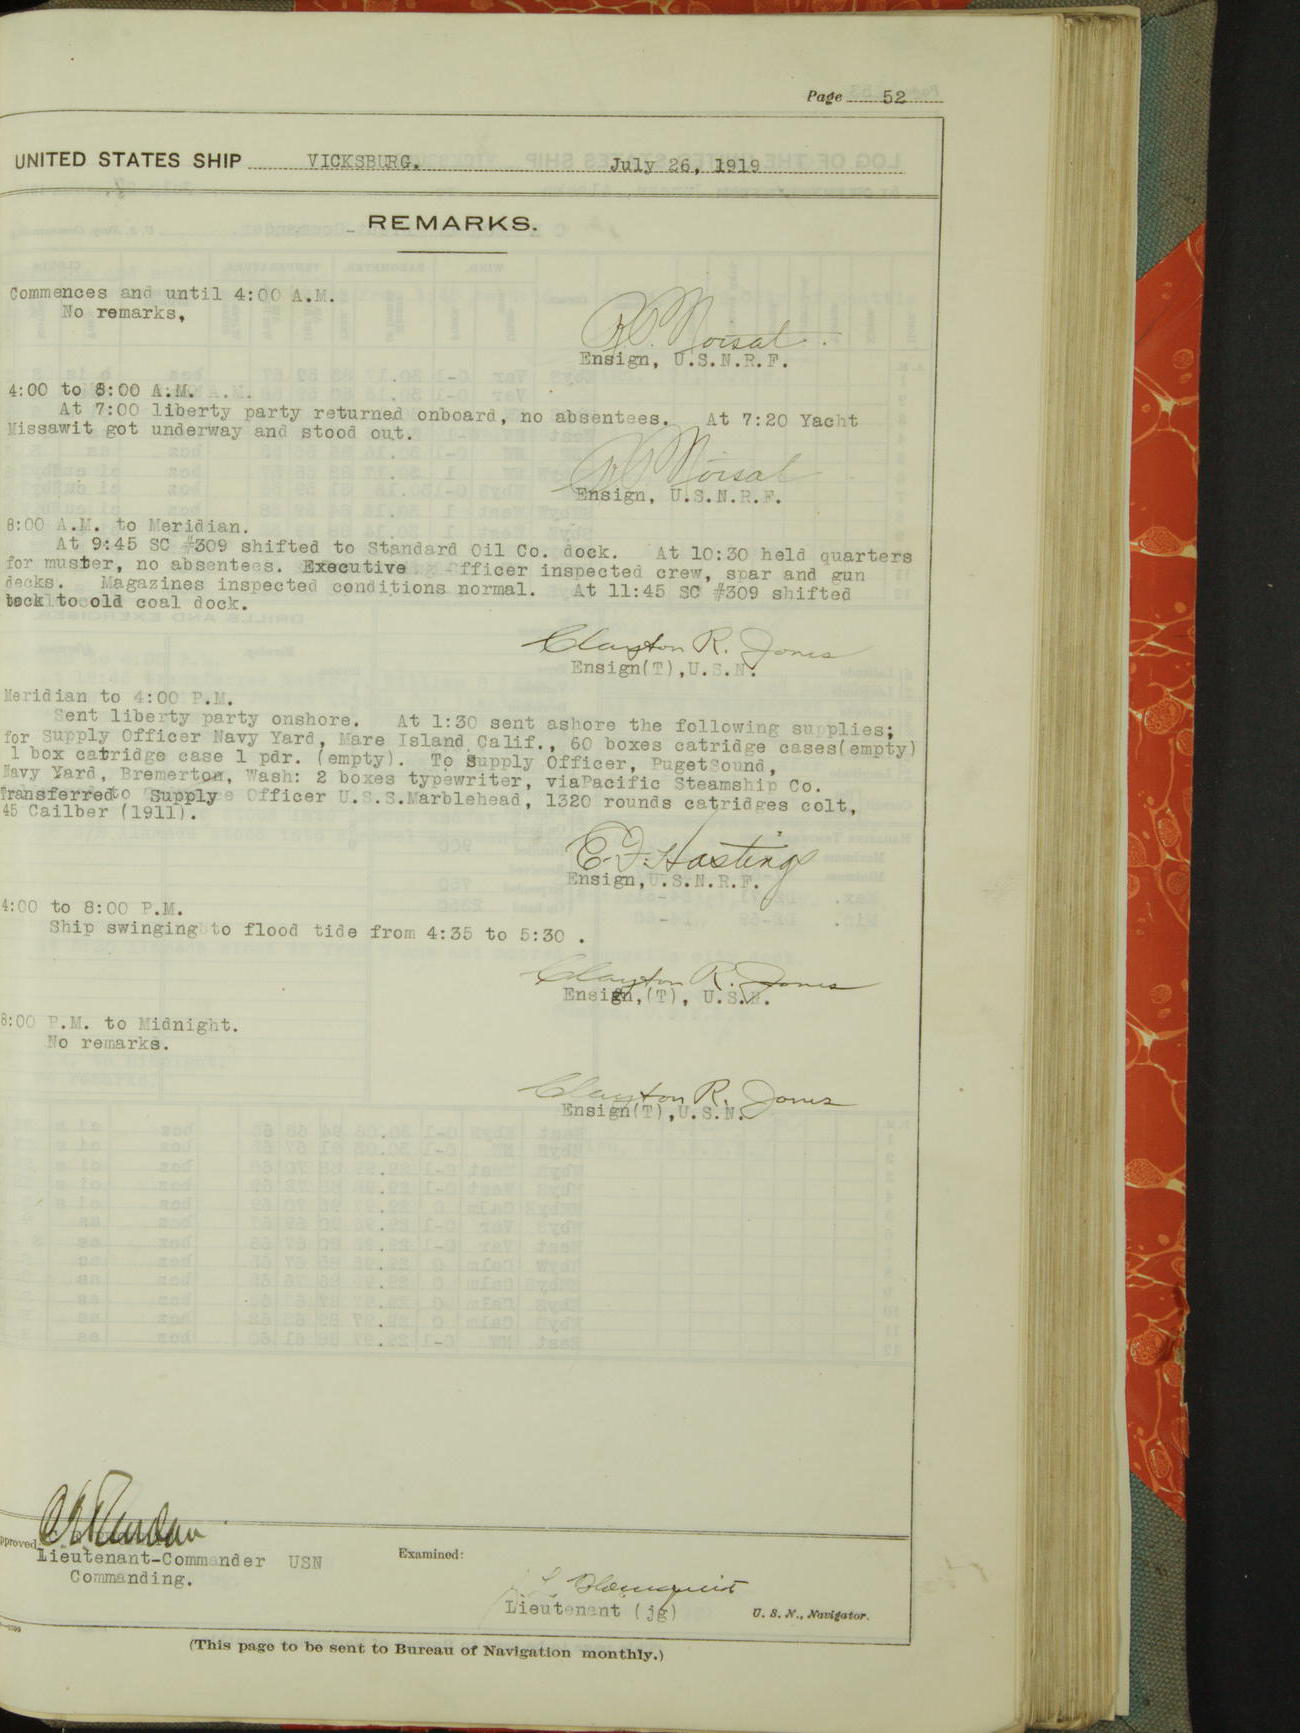 Page 52
UNITED STATES SHIP VICKSBURG. July 26, 1919
REMARKS.
Commences and until 4:00 A.M.
No remarks,
Ensign, U.S.N.R.F.
4:00 to 8:00 A.M.
At 7:00 liberty party returned onboard, no absentees. At 7:20 Yacht
Missawit got underway and stood out.
Ensign, U.S.N.R.F.
8:00 A.M. to Meridian.
At 9:45 SC #309 shifted to Standard Oil Co. dock. At 10:30 held quarters
for muster, no absentees. Executive Officer inspected crew, spar and gun
decks. Magazines inspected conditions normal. At 11:45 SC #309 shifted
back to old coal dock.
Clayton R. Jones
Ensign(T),U.S.N.
Meridian to 4:00 P.M.
Sent liberty party onshore. At 1:30 sent ashore the following supplies;
for Supply Officer Navy Yard, Mare Island Calif., 60 boxes catridge cases(empty)
1 box catridge case 1 pdr. (empty). To Supply Officer, PugetSound,
Navy Yard, Bremerton, Wash: 2 boxes typewriter, viaPacific Steamship Co.
Transferred to Supply Officer U.S.S.Marblehead, 1320 rounds catridges colt,
45 Cailber (1911).
E. F. Hastings
Ensign,U.S.N.R.F.
4:00 to 8:00 P.M.
Ship swinging to flood tide from 4:35 to 5:30 .
Clayton R. Jones
Ensign,(T), U.S.N.
8:00 P.M. to Midnight.
No remarks.
Clayton R. Jones
Ensign(T),U.S.N.
Approved
Lieutenant-Commander USN
Commanding.
Examined:
Lieutenant (jg) U. S. N., Navigator.
(This page to be sent to Bureau of Navigation monthly.)